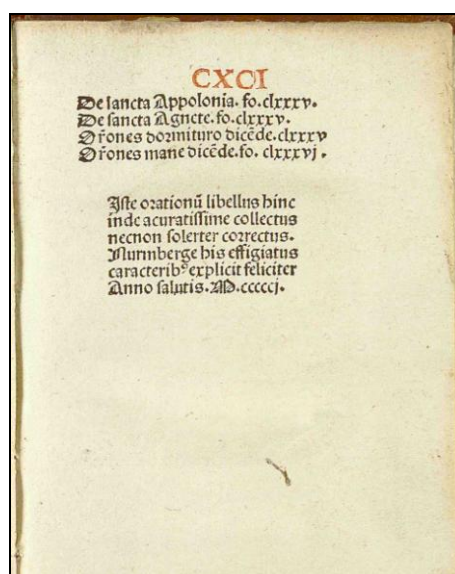 CXCI
De sancta Appolonia. fo. clxxxv.
De sancta Agnete. fo. clxxxv.
Or̃ones dormituro dicẽde. clxxxv
Or̃ones mane dicẽde. fo. clxxxvj.
Iste orationũ libellus hinc
inde acuratissime collectus
necnon solerter correctus.
Nurmberge his effigiatus
caracterib⁹ explicit feliciter
Anno salutis. M. cccccj.